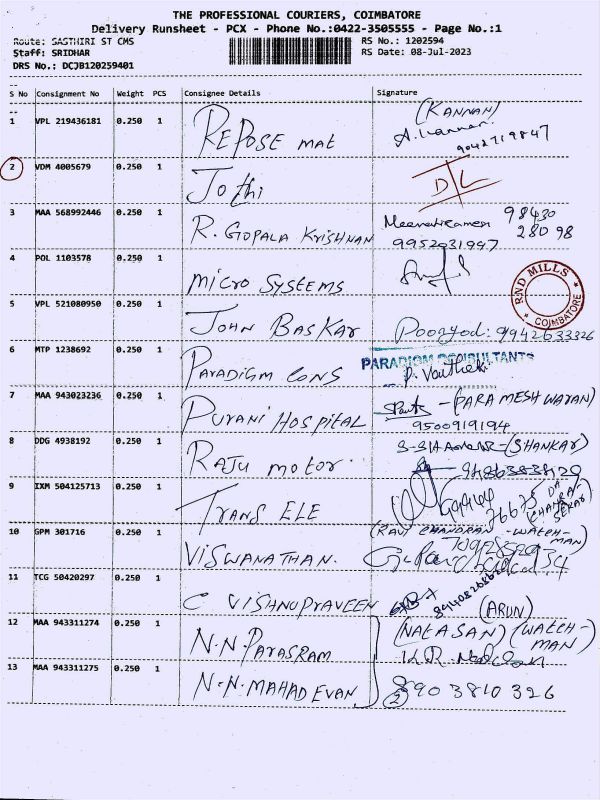 THE PROFESSIONAL COURIERS, COIMBATORE
Delivery Runsheet - PCX - Phone No.:0422-3505555 - Page No.:1
Route: SASTHIRI ST CMS RS No.: 1202594
Staff: SRIDHAR RS Date: 08-Jul-2023
DRS No.: DCJB120259401
S No Consignment No Weight PCS Consignee Details Signature
(KANNAN)
1 VPL 219436181 0.250 1 REPOSE mat A. Kannan
9042719847
2 VDM 4005679 0.250 1 Jothi D/L
3 MAA 568992446 0.250 1 R. GOPALA KRISHNAN 98430
28098
9952031947
4 POL 1103578 0.250 1 micro SYSTEMS
RND MILLS COIMBATORE
5 VPL 521080950 0.250 1 JOHN BASKAR 9942633326
6 MTP 1238692 0.250 1 PARADIGM CONS PARADIGM CONSULTANTS
7 MAA 943023236 0.250 1 PURANI HOSPITAL (PARAMESHWARAN)
9500919194
8 DDG 4938192 0.250 1 RAJU motor (SHANKAR)
9 IXM 504125713 0.250 1 TRANS ELE
(CHANDRA-
SEKAR)
10 GPM 301716 0.250 1 VISWANATHAN. (RAVI CHANDRAN - WATCH-
MAN)
11 TCG 50420297 0.250 1 C VISHNUPRAVEEN (ARUN)
12 MAA 943311274 0.250 1 N.N. PARASRAM (NATASAN) (WATCH-
MAN)
13 MAA 943311275 0.250 1 N.N. MAHADEVAN 8903810326
2